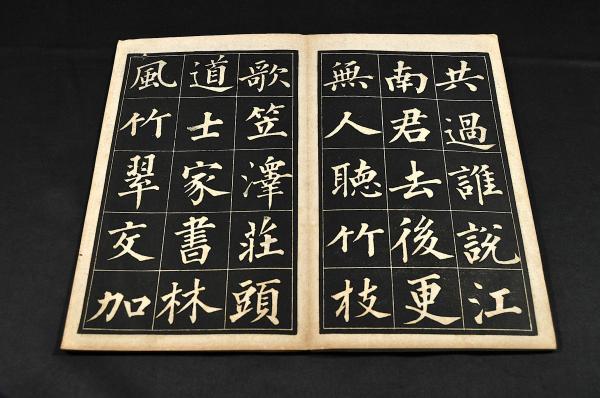 共過誰説江
南君去後更
無人聽竹枝
歌笠澤莊頭
道士家書林
風竹翠交加